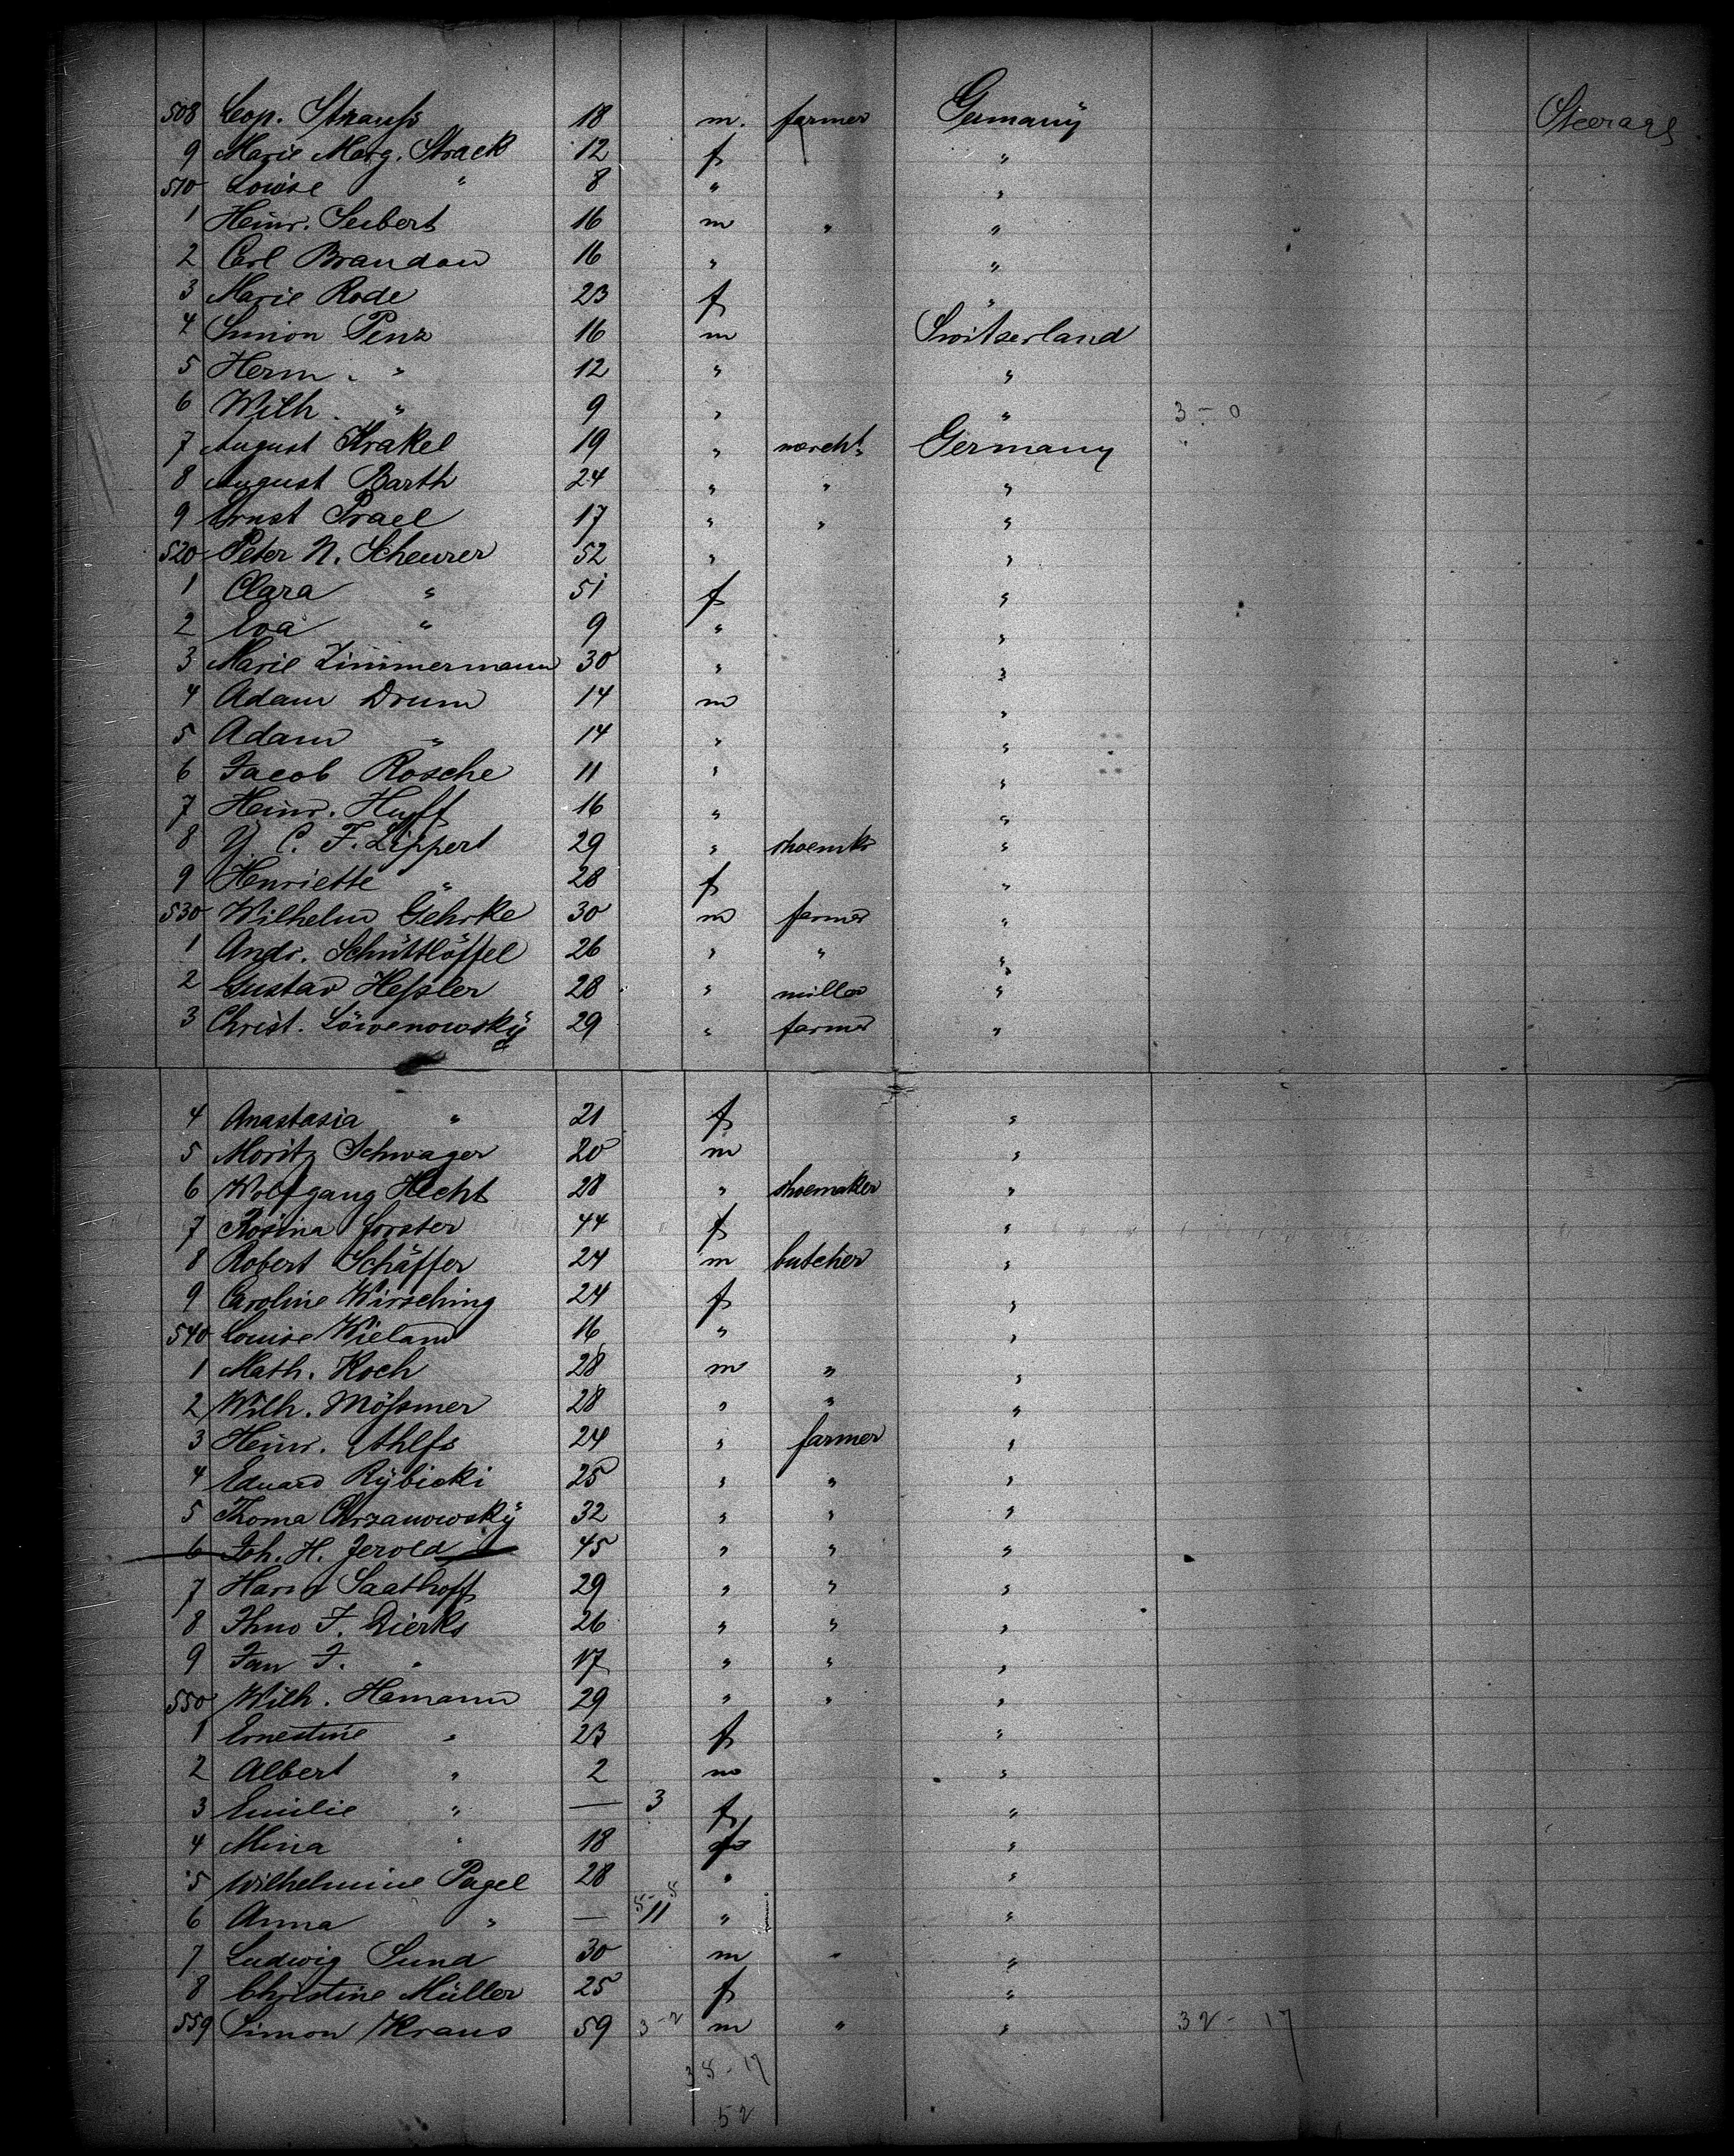 508 Leop. Strauß 18 m. farmer Germany Steerage
9 Marie Marg. Strack 12 f "
510 Louise " 8 " "
1 Heinr. Seibert 16 m " "
2 Carl Brandau 16 " "
3 Marie Rode 23 f "
4 Simon Penz 16 m Switserland
5 Herm. " 12 " "
6 Wilh. " 9 " " 3 - 0
7 August Krakel 19 " march. Germany
8 August Barth 24 " " "
9 Ernst Prael 17 " " "
520 Peter N. Scheurer 52 " "
1 Clara " 51 f "
2 Eva " 9 " "
3 Marie Zimmermann 30 " "
4 Adam Drum 14 m "
5 Adam " 14 " "
6 Jacob Rosche 11 " "
7 Heinr. Huff 16 " "
8 C. F. Lippert 29 " shoemkr "
9 Henriette " 28 f "
530 Wilhelm Gehrke 30 m farmer "
1 Andr. Schüttlöffel 26 " " "
2 Gustav Heßler 28 " miller "
3 Christ. Löwenowskÿ 29 " farmer "
4 Anastasia " 21 f "
5 Moritz Schwager 20 m "
6 Wolfgang Hecht 28 " shoemaker "
7 Rosina Forster 44 f "
8 Robert Schäffer 24 m butcher "
9 Caroline Wirsching 24 f "
540 Louise Wieland 16 " "
1 Math. Koch 28 m " "
2 Wilh. Mößmer 28 " " "
3 Heinr. Ahlfs 24 " farmer "
4 Eduard Rÿbicki 25 " " "
5 Thoma Chrzanowskÿ 32 " " "
6 Joh. H. Jerold 45 " " "
7 Harm Saathoff 29 " " "
8 Ihno F. Dierks 26 " " "
9 Jan F. " 17 " " "
550 Wilh. Hamann 29 " " "
1 Ernestine " 23 f "
2 Albert " 2 m "
3 Emilie " — 3 f "
4 Mina " 18 f "
5 Wilhelmine Pagel 28 " "
6 Anna " — 11 " "
7 Ludwig Sund 30 m " "
8 Christine Müller 25 f "
559 Simon Kraus 59 3-2 m " " 32 - 17
35 - 17
52